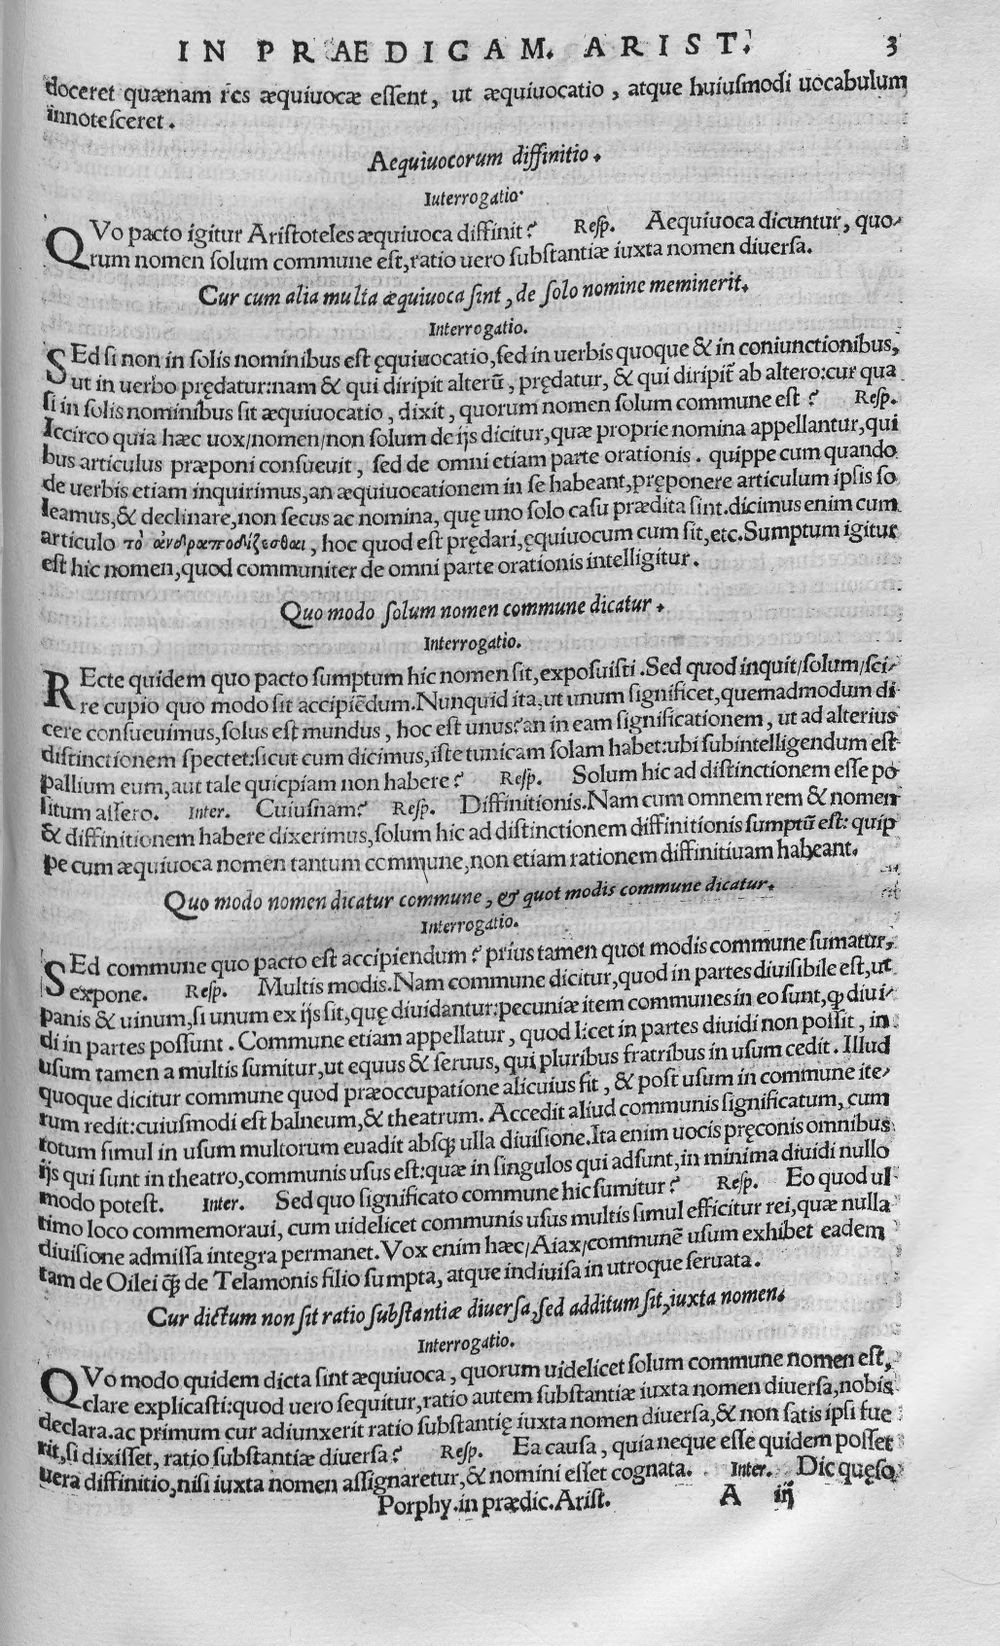 IN PRÆDICAM. ARIST. 3
doceret quænam res æquiuocæ essent, ut æquiuocatio, atque huiusmodi uocabulum
innotesceret.
Aequiuocorum diffinitio.
Iuterrogatio
QVo pacto igitur Aristoteles æquiuoca diffinit? Resp. Aequiuoca dicuntur, quo-
rum nomen solum commune est, ratio uero substantiæ iuxta nomen diuersa.
Cur cum alia multa æquiuoca sint, de solo nomine meminerit.
Interrogatio.
SEd si non in solis nominibus est ęquiuocatio, sed in uerbis quoque & in coniunctionibus,
ut in uerbo prędatur: nam & qui diripit alterũ, prędatur, & qui diripit̃ ab altero: cur qua
si in solis nominibus sit æquiuocatio, dixit, quorum nomen solum commune est? Resp.
Iccirco quia hæc uox/nomen/non solum de ijs dicitur, quæ proprie nomina appellantur, qui
bus articulus præponi consueuit, sed de omni etiam parte orationis. quippe cum quando
de uerbis etiam inquirimus, an æquiuocationem in se habeant, pręponere articulum ipsis so
leamus, & declinare, non secus ac nomina, quę uno solo casu prædita sint. dicimus enim cum
articulo τὸ ἀνδραποδίζεσθαι, hoc quod est prędari, ęquiuocum cum sit, etc. Sumptum igitur
est hic nomen, quod communiter de omni parte orationis intelligitur.
Quo modo solum nomen commune dicatur.
Interrogatio.
REcte quidem quo pacto sumptum hic nomen sit, exposuisti. Sed quod inquit/solum/sci-
re cupio quo modo sit accipiẽdum. Nunquid ita, ut unum significet, quemadmodum di-
cere consueuimus, solus est mundus, hoc est unus: an in eam significationem, ut ad alterius
distinctionem spectet: sicut cum dicimus, iste tunicam solam habet: ubi subintelligendum est
pallium eum, aut tale quicpiam non habere? Resp. Solum hic ad distinctionem esse po
situm assero. Inter. Cuiusnam? Resp. Diffinitionis. Nam cum omnem rem & nomen
& diffinitionem habere dixerimus, solum hic ad distinctionem diffinitionis sumptũ est: quip
pe cum æquiuoca nomen tantum commune, non etiam rationem diffinitiuam habeant.
Quo modo nomen dicatur commune, & quot modis commune dicatur.
Interrogatio.
SEd commune quo pacto est accipiendum? prius tamen quot modis commune sumatur,
expone. Resp. Multis modis. Nam commune dicitur, quod in partes diuisibile est, ut
panis & uinum, si unum ex ijs sit, quę diuidantur: pecuniæ item communes in eo sunt, ꝙ diui-
di in partes possunt. Commune etiam appellatur, quod licet in partes diuidi non possit, in
usum tamen a multis sumitur, ut equus & seruus, qui pluribus fratribus in usum cedit. Illud
quoque dicitur commune quod præoccupatione alicuius fit, & post usum in commune ite-
rum redit: cuiusmodi est balneum, & theatrum. Accedit aliud communis significatum, cum
totum simul in usum multorum euadit absꝗ ulla diuisione. Ita enim uocis pręconis omnibus
ijs qui sunt in theatro, communis usus est: quæ in singulos qui adsunt, in minima diuidi nullo
modo potest. Inter. Sed quo significato commune hic sumitur? Resp. Eo quod ul-
timo loco commemoraui, cum uidelicet communis usus multis simul efficitur rei, quæ nulla
diuisione admissa integra permanet. Vox enim hæc/Aiax/communẽ usum exhibet eadem
tam de Oilei ꝗ̃ de Telamonis filio sumpta, atque indiuisa in utroque seruata.
Cur dictum non sit ratio substantiæ diuersa, sed additum sit, iuxta nomen.
Interrogatio.
QVo modo quidem dicta sint æquiuoca, quorum uidelicet solum commune nomen est,
clare explicasti: quod uero sequitur, ratio autem substantiæ iuxta nomen diuersa, nobis
declara. ac primum cur adiunxerit ratio substantię iuxta nomen diuersa, & non satis ipsi fue
rit, si dixisset, ratio substantiæ diuersa? Resp. Ea causa, quia neque esse quidem posset
uera diffinitio, nisi iuxta nomen assignaretur, & nomini esset cognata. Inter. Dic quęso
Porphy. in prædic. Arist. A iij